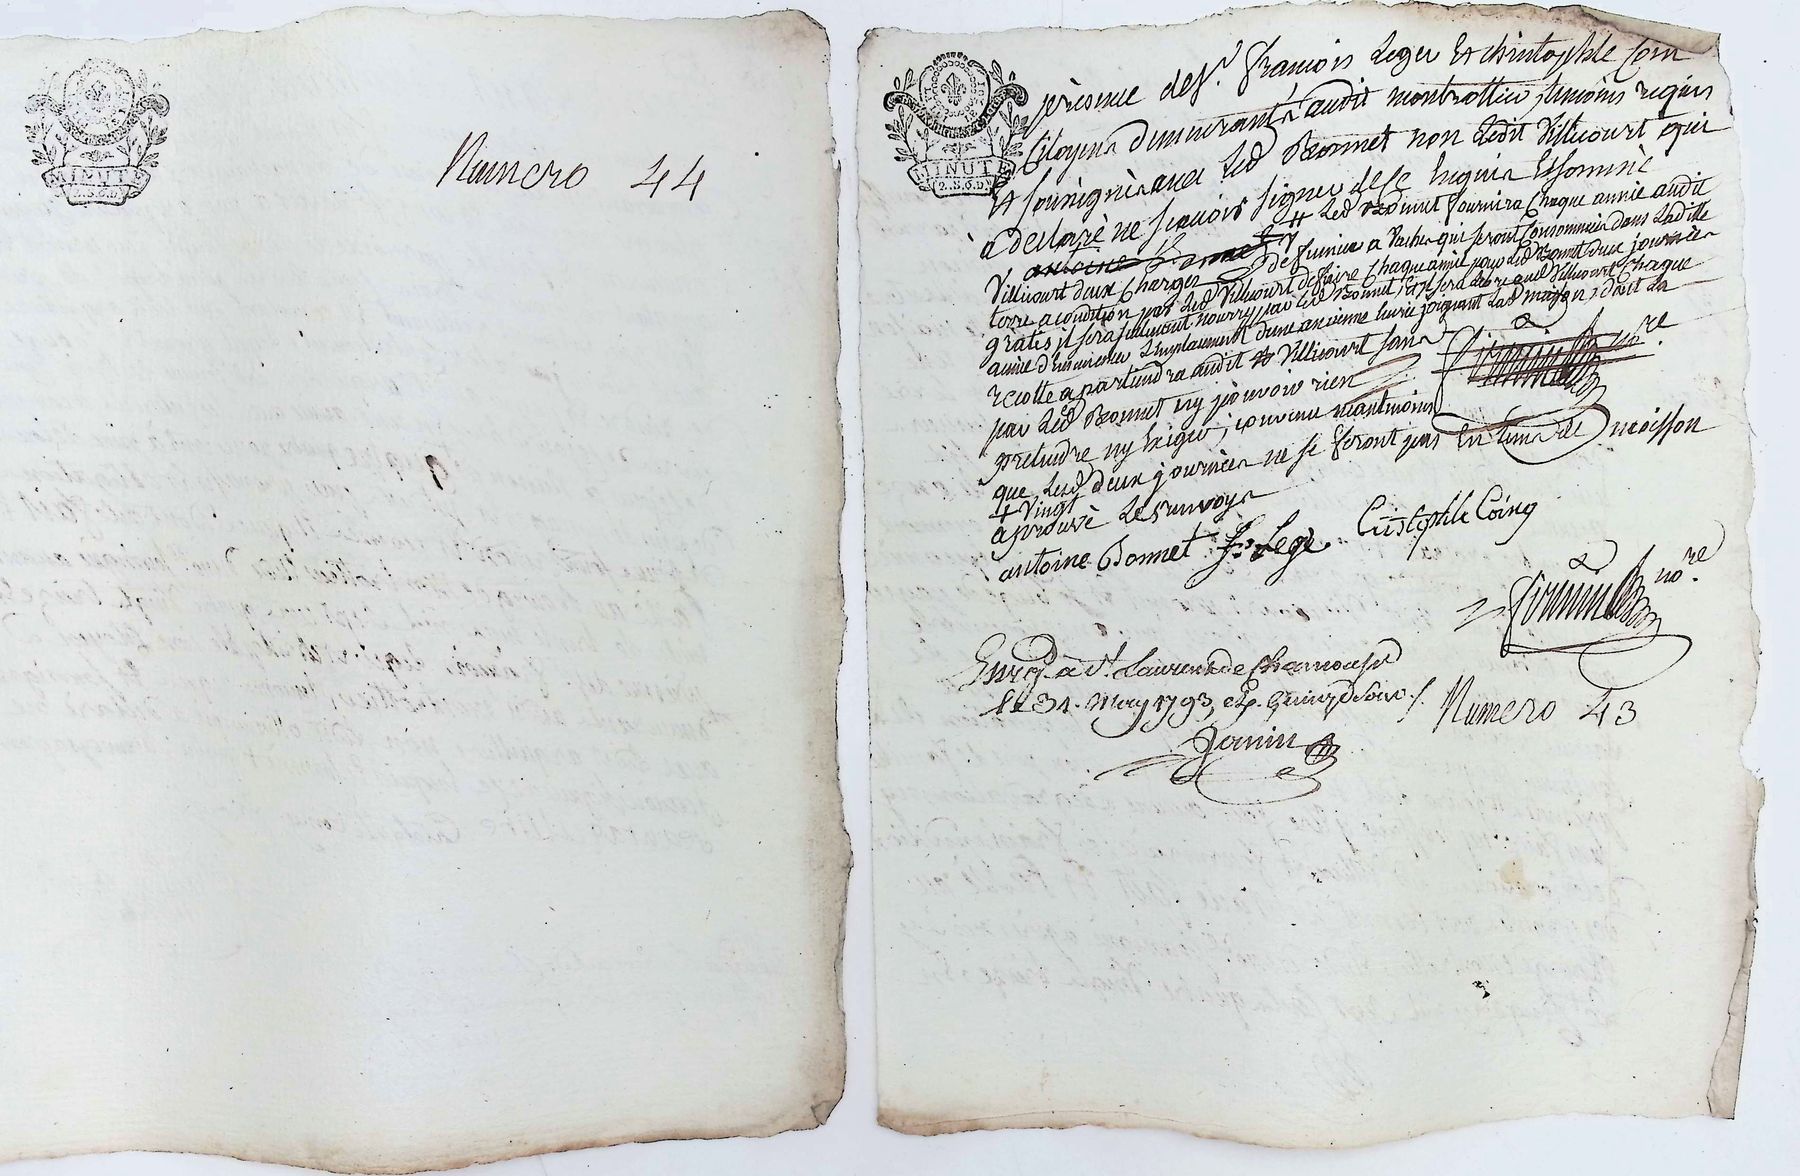 MINUTE
2. S. 6. D.
Numero 44
MINUTE
2. S. 6. D.
présence de Sr. François Leger Et christophle Coin
Citoyens demeurants audit montrottier, temoins requis
Et soussignés avec led Bonnet non Ledit Villicourt qui
a declaré ne sçavoir signer de ce Enquis Et sommé
antoine Bonnet
Led Bonnet fournira Chaque année audit
Villicourt deux Charges de fumier a Vache qui seront consommées dans Laditte
terre a condition par led Villicourt de faire Chaque année pour led Bonnet deux journées
gratis, il sera seulement nourry par led Bonnet, Il sera libre aud Villicourt Chaque
année d'ensemencer L'emplacement d'une ancienne Curie joignant Lad maison, dont La
recolte apartiendra audit Villicourt sans
par Led Bonnet ny pouvoir rien
pretendre ny Exiger, convenu neantmoins
que Lesd deux journées ne se feront pas En tems de moisson
+ Vingt
aprouvé Les renvoys
antoine Bonnet fs Legé Cristophle Coing
nore.
Enregé à St. Laurent de Chamousset
le 31. may 1793, R. quinze sous ./.
Numero 43
Janin